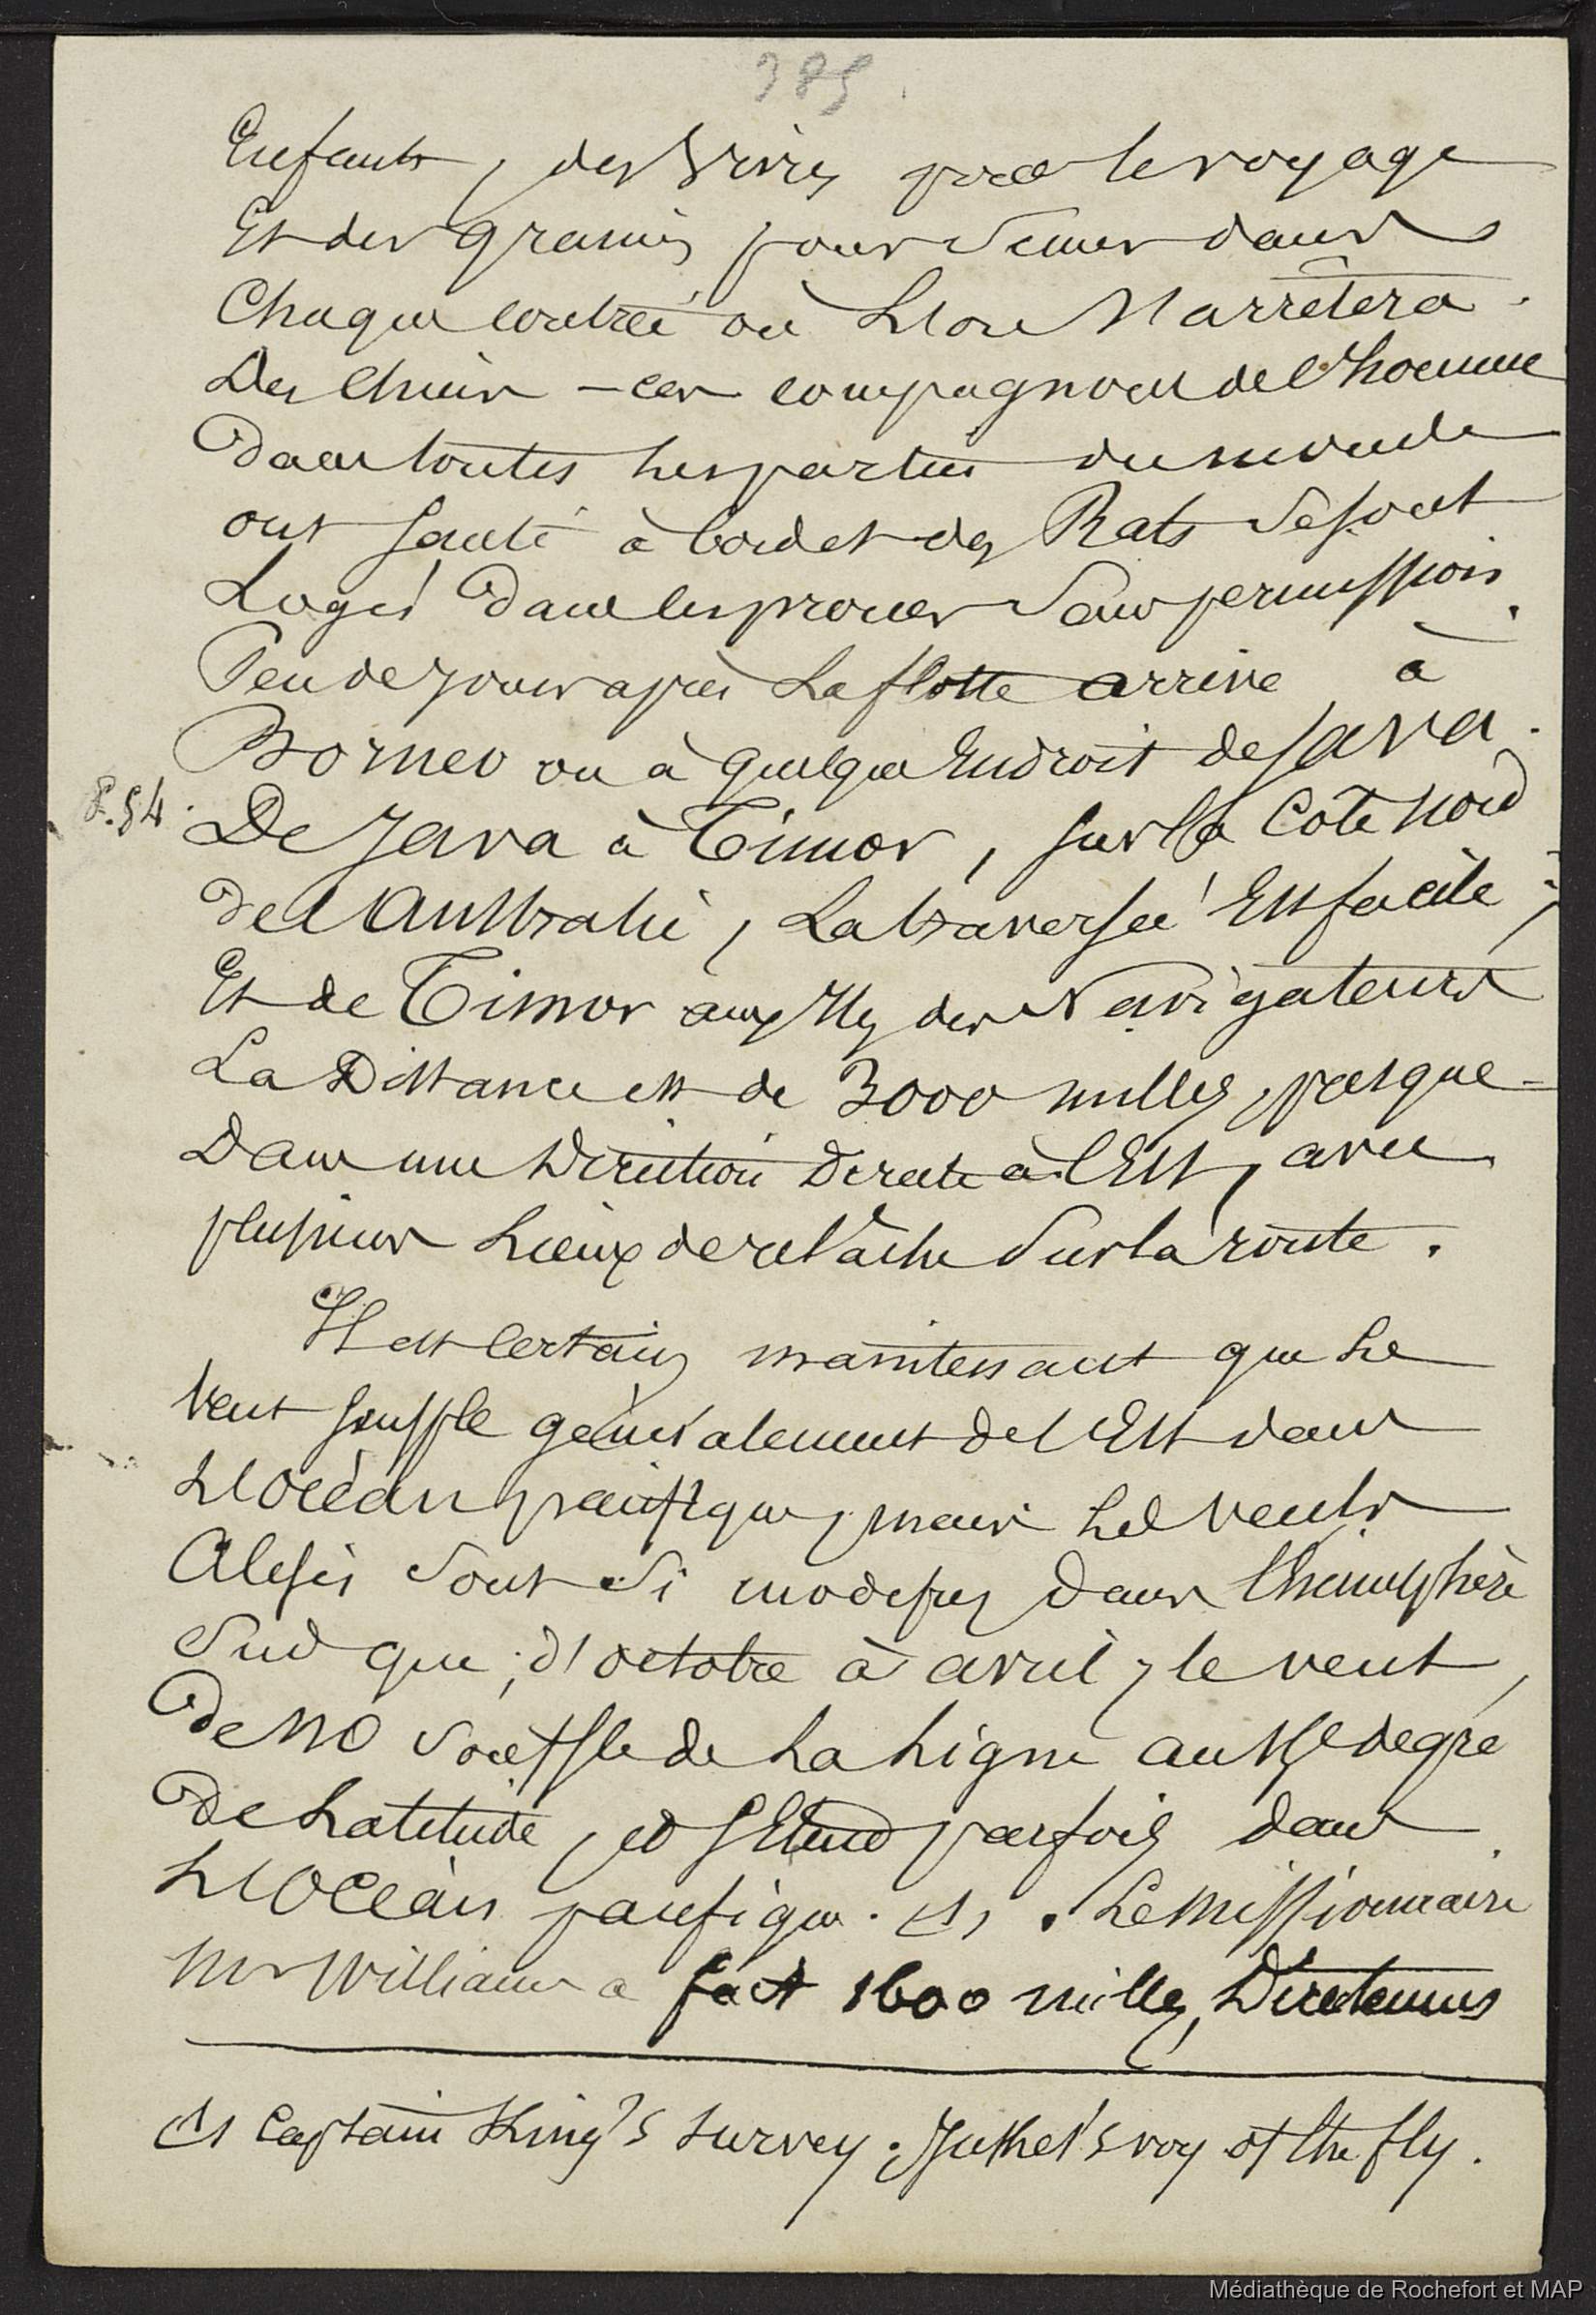 385.
Enfants, des vivres pour le voyage
Et des graines pour semer dans
Chaque contrée où L'on s'arrêtera.
Des chiens — ces compagnons de l'homme
Dans toutes les parties du monde
ont sauté à bord et des Rats se sont
Logés dans les proues sans permission.
Peu de jours après La flotte arrive à
Borneo ou à quelque Endroit de Java.
P. 54. De Java à Timor, sur la Côte nord
de l'Australie, La traversée Est facile;
Et de Timor aux Iles des Navigateurs
La Distance est de 3000 milles, presque
Dans une Direction Directe à l'Est, avec
plusieurs Lieux de relâche sur la route.
Il est Certain maintenant que Le
Vent souffle généralement de l'Est dans
L'océan pacifique, mais Les vents
Alisés sont si modifiés dans l'hémisphère
Sud que, d'octobre à avril, le vent
De NO souffle de La Ligne au degré
De Latitude, et s'Etend parfois dans
L'Océan pacifique. (1). Le Missionnaire
Mr Williams a fait 1600 milles, Directement
(1) Captain King's Survey. Jukes's voy of the fly.